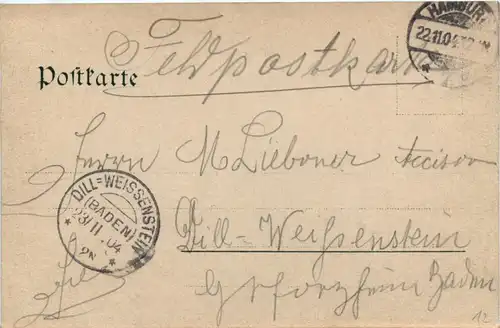 Feldpostkarte
Postkarte
HAMBURG
22.11.04
Herrn M Liebener Accisor
DILL=WEISSENSTEIN
(BADEN)
23/11 04
2N
Dill=Weißenstein
Pforzheim Baden
12